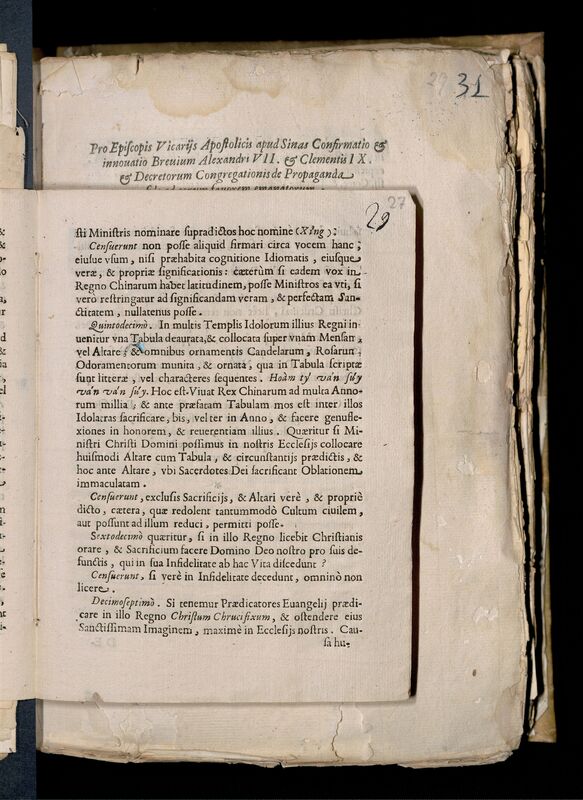 29 31
Pro Episcopis Vicarijs Apostolicis apud Sinas Confirmatio &
innouatio Breuium Alexandri VII. & Clementis IX.
& Decretorum Congregationis de Propaganda
27
29
sti Ministris nominare supradictos hoc nomine (Xíng):
Censuerunt non posse aliquid firmari circa vocem hanc;
eiusue vsum, nisi præhabita cognitione Idiomatis, eiusque
veræ, & propriæ significationis: cæterùm si eadem vox in
Regno Chinarum habet latitudinem, posse Ministros ea vti, si
vero restringatur ad significandam veram, & perfectam San-
ctitatem, nullatenus posse.
Quintodecimò. In multis Templis Idolorum illius Regni in-
uenitur vna Tabula deaurata, & collocata super vnam Mensam,
vel Altare, & omnibus ornamentis Candelarum, Rosarum
Odoramentorum munita, & ornata, qua in Tabula scriptæ
sunt litteræ, vel characteres sequentes. Hoàm tý ván súy
ván ván súy. Hoc est. Viuat Rex Chinarum ad multa Anno-
rum millia; & ante præfatam Tabulam mos est inter illos
Idolatras sacrificare, bis, vel ter in Anno, & facere genufle-
xiones in honorem, & reuerentiam illius. Quæritur si Mi-
nistri Christi Domini possimus in nostris Ecclesijs collocare
huismodi Altare cum Tabula, & circunstantijs prædictis, &
hoc ante Altare, vbi Sacerdotes Dei sacrificant Oblationem
immaculatam.
Censuerunt, exclusis Sacrificijs, & Altari verè, & propriè
dicto, cætera, quæ redolent tantummodò Cultum ciuilem,
aut possunt ad illum reduci, permitti posse.
Sextodecimò quæritur, si in illo Regno licebit Christianis
orare, & Sacrificium facere Domino Deo nostro pro suis de-
functis, qui in sua Infidelitate ab hac Vita discedunt?
Censuerunt, si verè in Infidelitate decedunt, omninò non
licere.
Decimoseptimò. Si tenemur Prædicatores Euangelij prædi-
care in illo Regno Christum Chrucifixum, & ostendere eius
Sanctissimam Imaginem, maximè in Ecclesijs nostris. Cau-
sa hu-